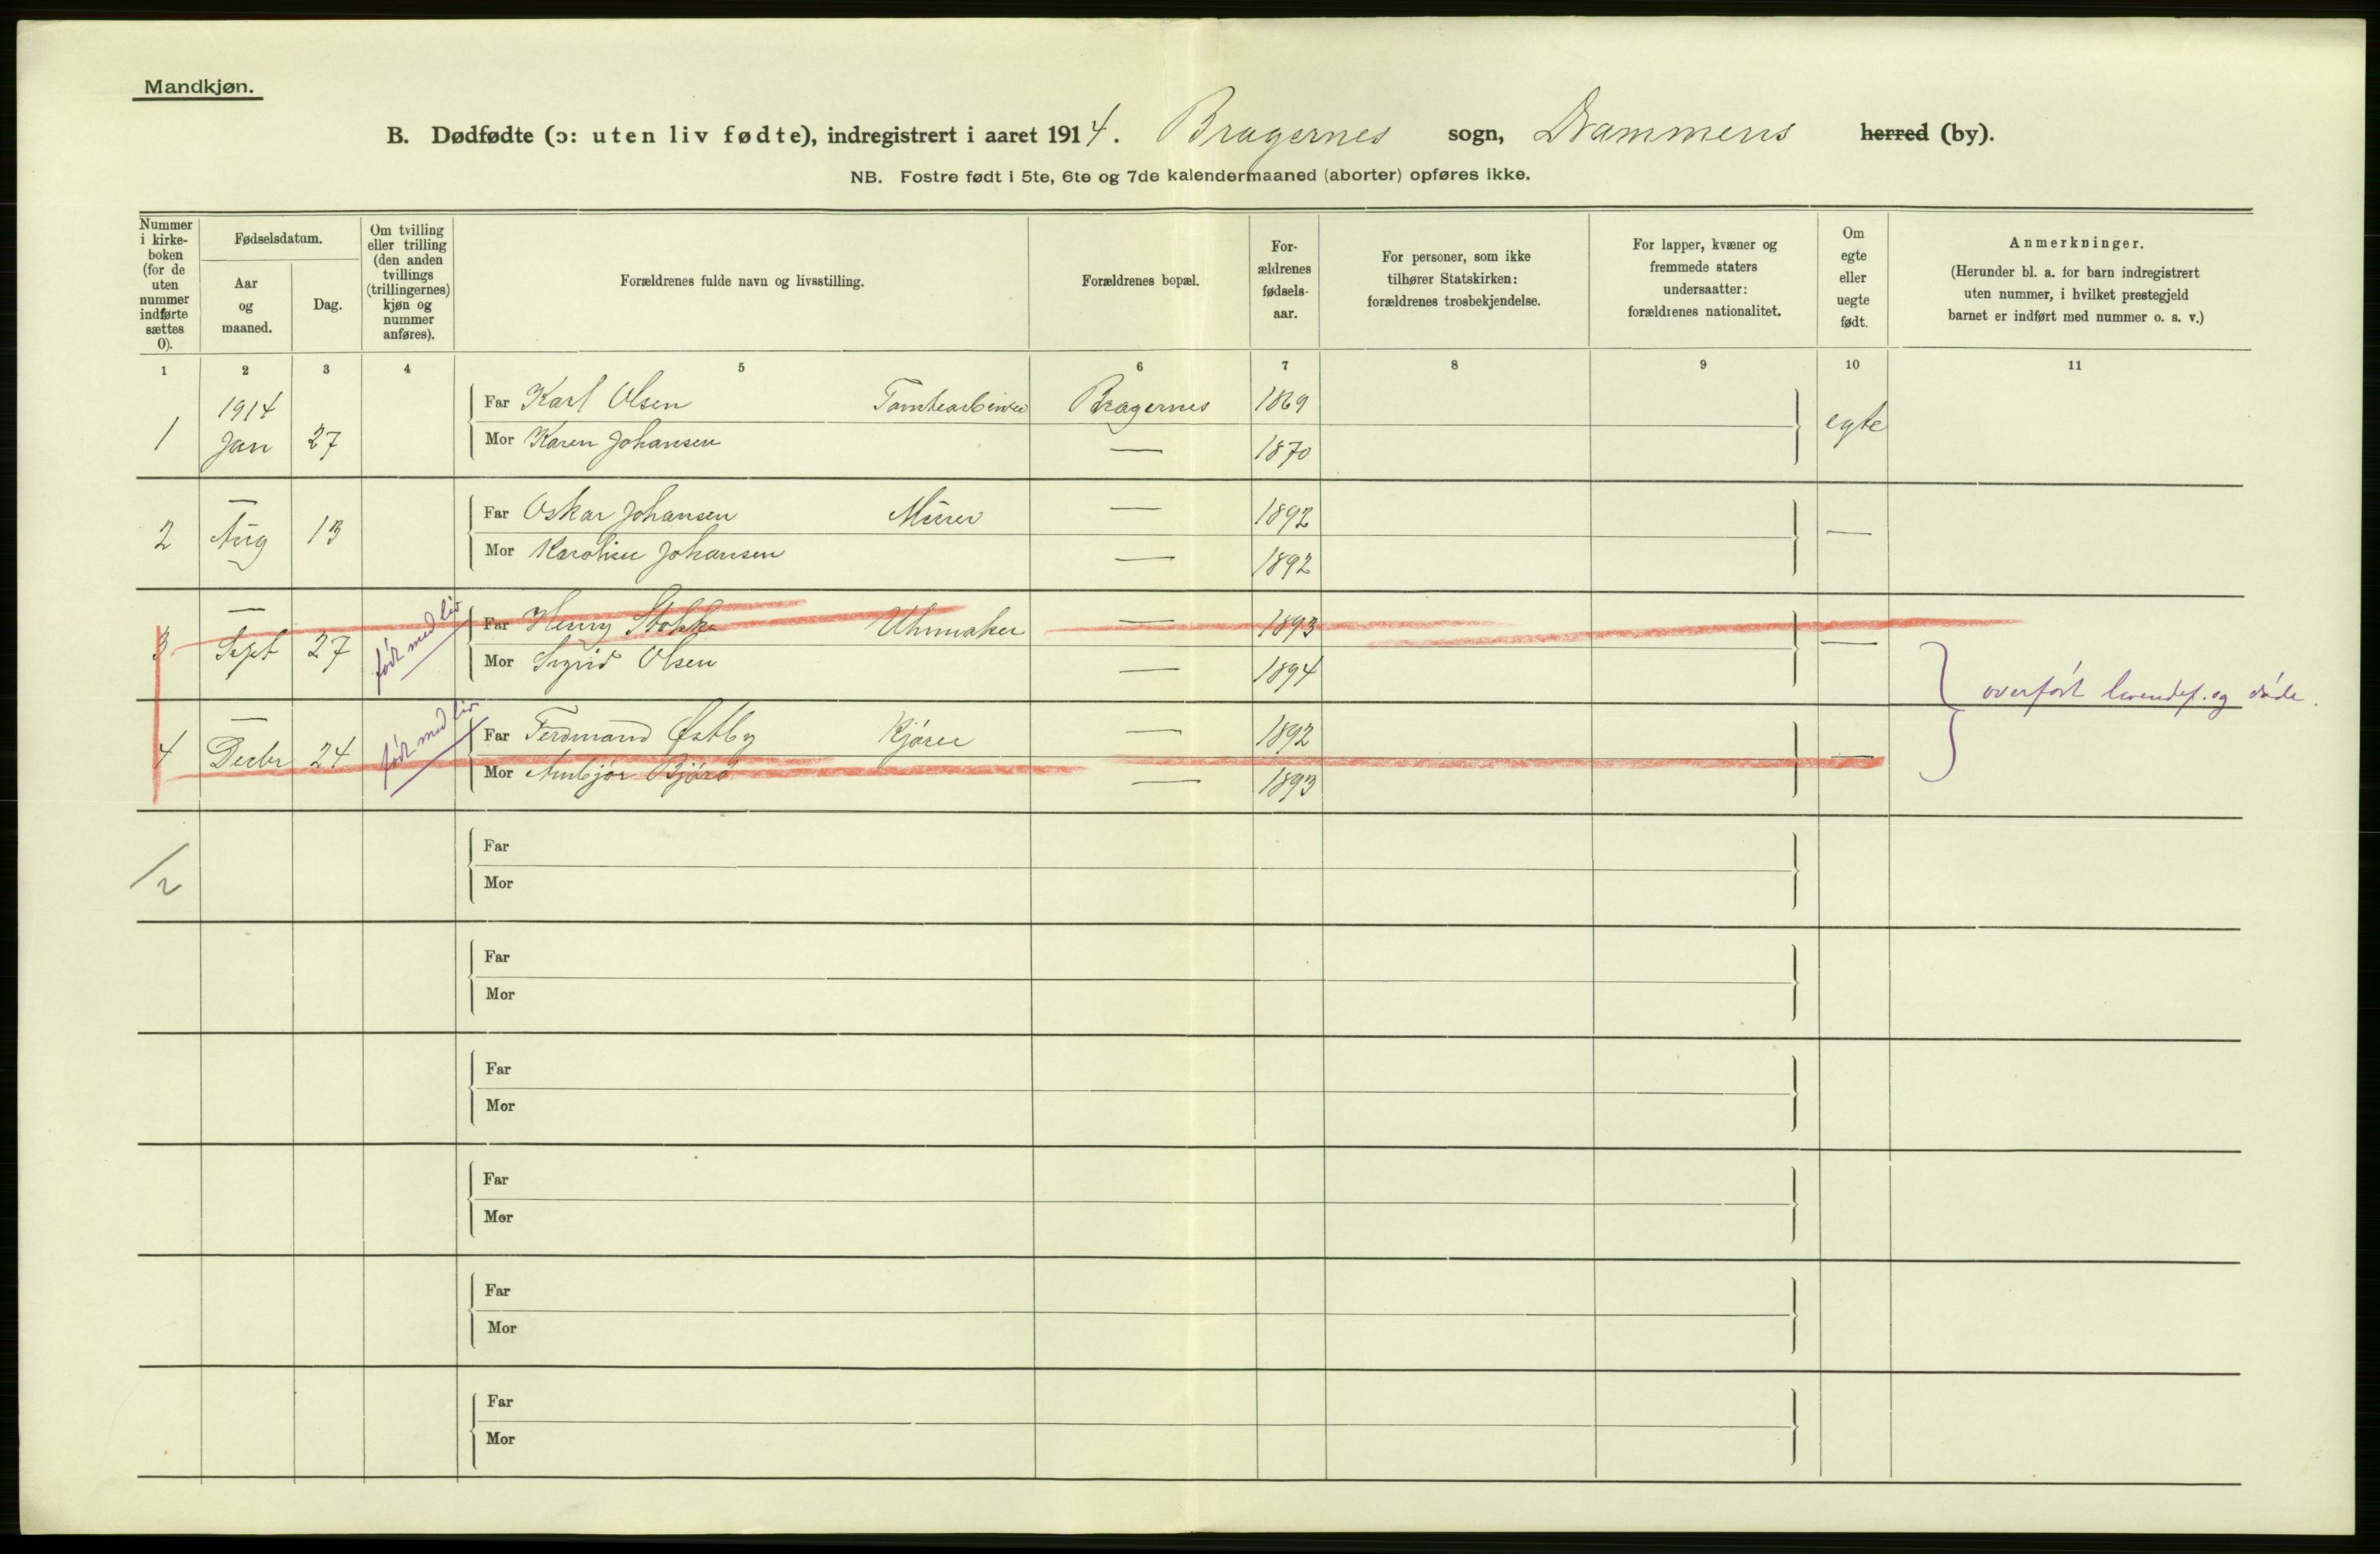 Mandkjøn.
B. Dødfødte (ɔ: uten liv fødte), indregistrert i aaret 1914. Bragernes sogn, Drammens herred (by).
NB. Fostre født i 5te, 6te og 7de kalendermaaned (aborter) opføres ikke.
Nummer
i kirke-
boken
(for de
uten
nummer
indførte
sættes
0).
Fødselsdatum.
Aar
og
maaned.
Dag.
Om tvilling
eller trilling
(den anden
tvillings
(trillingernes)
kjøn og
nummer
anføres).
Forældrenes fulde navn og livsstilling.
Forældrenes bopæl.
For-
ældrenes
fødsels-
aar.
For personer, som ikke
tilhører Statskirken:
forældrenes trosbekjendelse.
For lapper, kvæner og
fremmede staters
undersaatter:
forældrenes nationalitet.
Om
egte
eller
uegte
født.
Anmerkninger.
(Herunder bl. a. for barn indregistrert
uten nummer, i hvilket prestegjeld
barnet er indført med nummer o. s. v.)
1 2 3 4 5 6 7 8 9 10 11
1914
1 Jan 27
Far Karl Olsen Bragernes 1869
Mor Karen Johansen — 1870
egte
—
2 Aug 13
Far Oskar Johansen Murer — 1892
Mor Karoline Johansen — 1892
—
—
3 Sept 27 født med liv
Far Henry Stokke Uhrmaker — 1893
Mor Sigrid Olsen — 1894
—
—
4 Decbr 24 født med liv
Far Ferdinand Østby Kjører — 1892
Mor — 1893
—
overført levendef. og døde.
/2
Far
Mor
Far
Mor
Far
Mor
Far
Mor
Far
Mor
Far
Mor